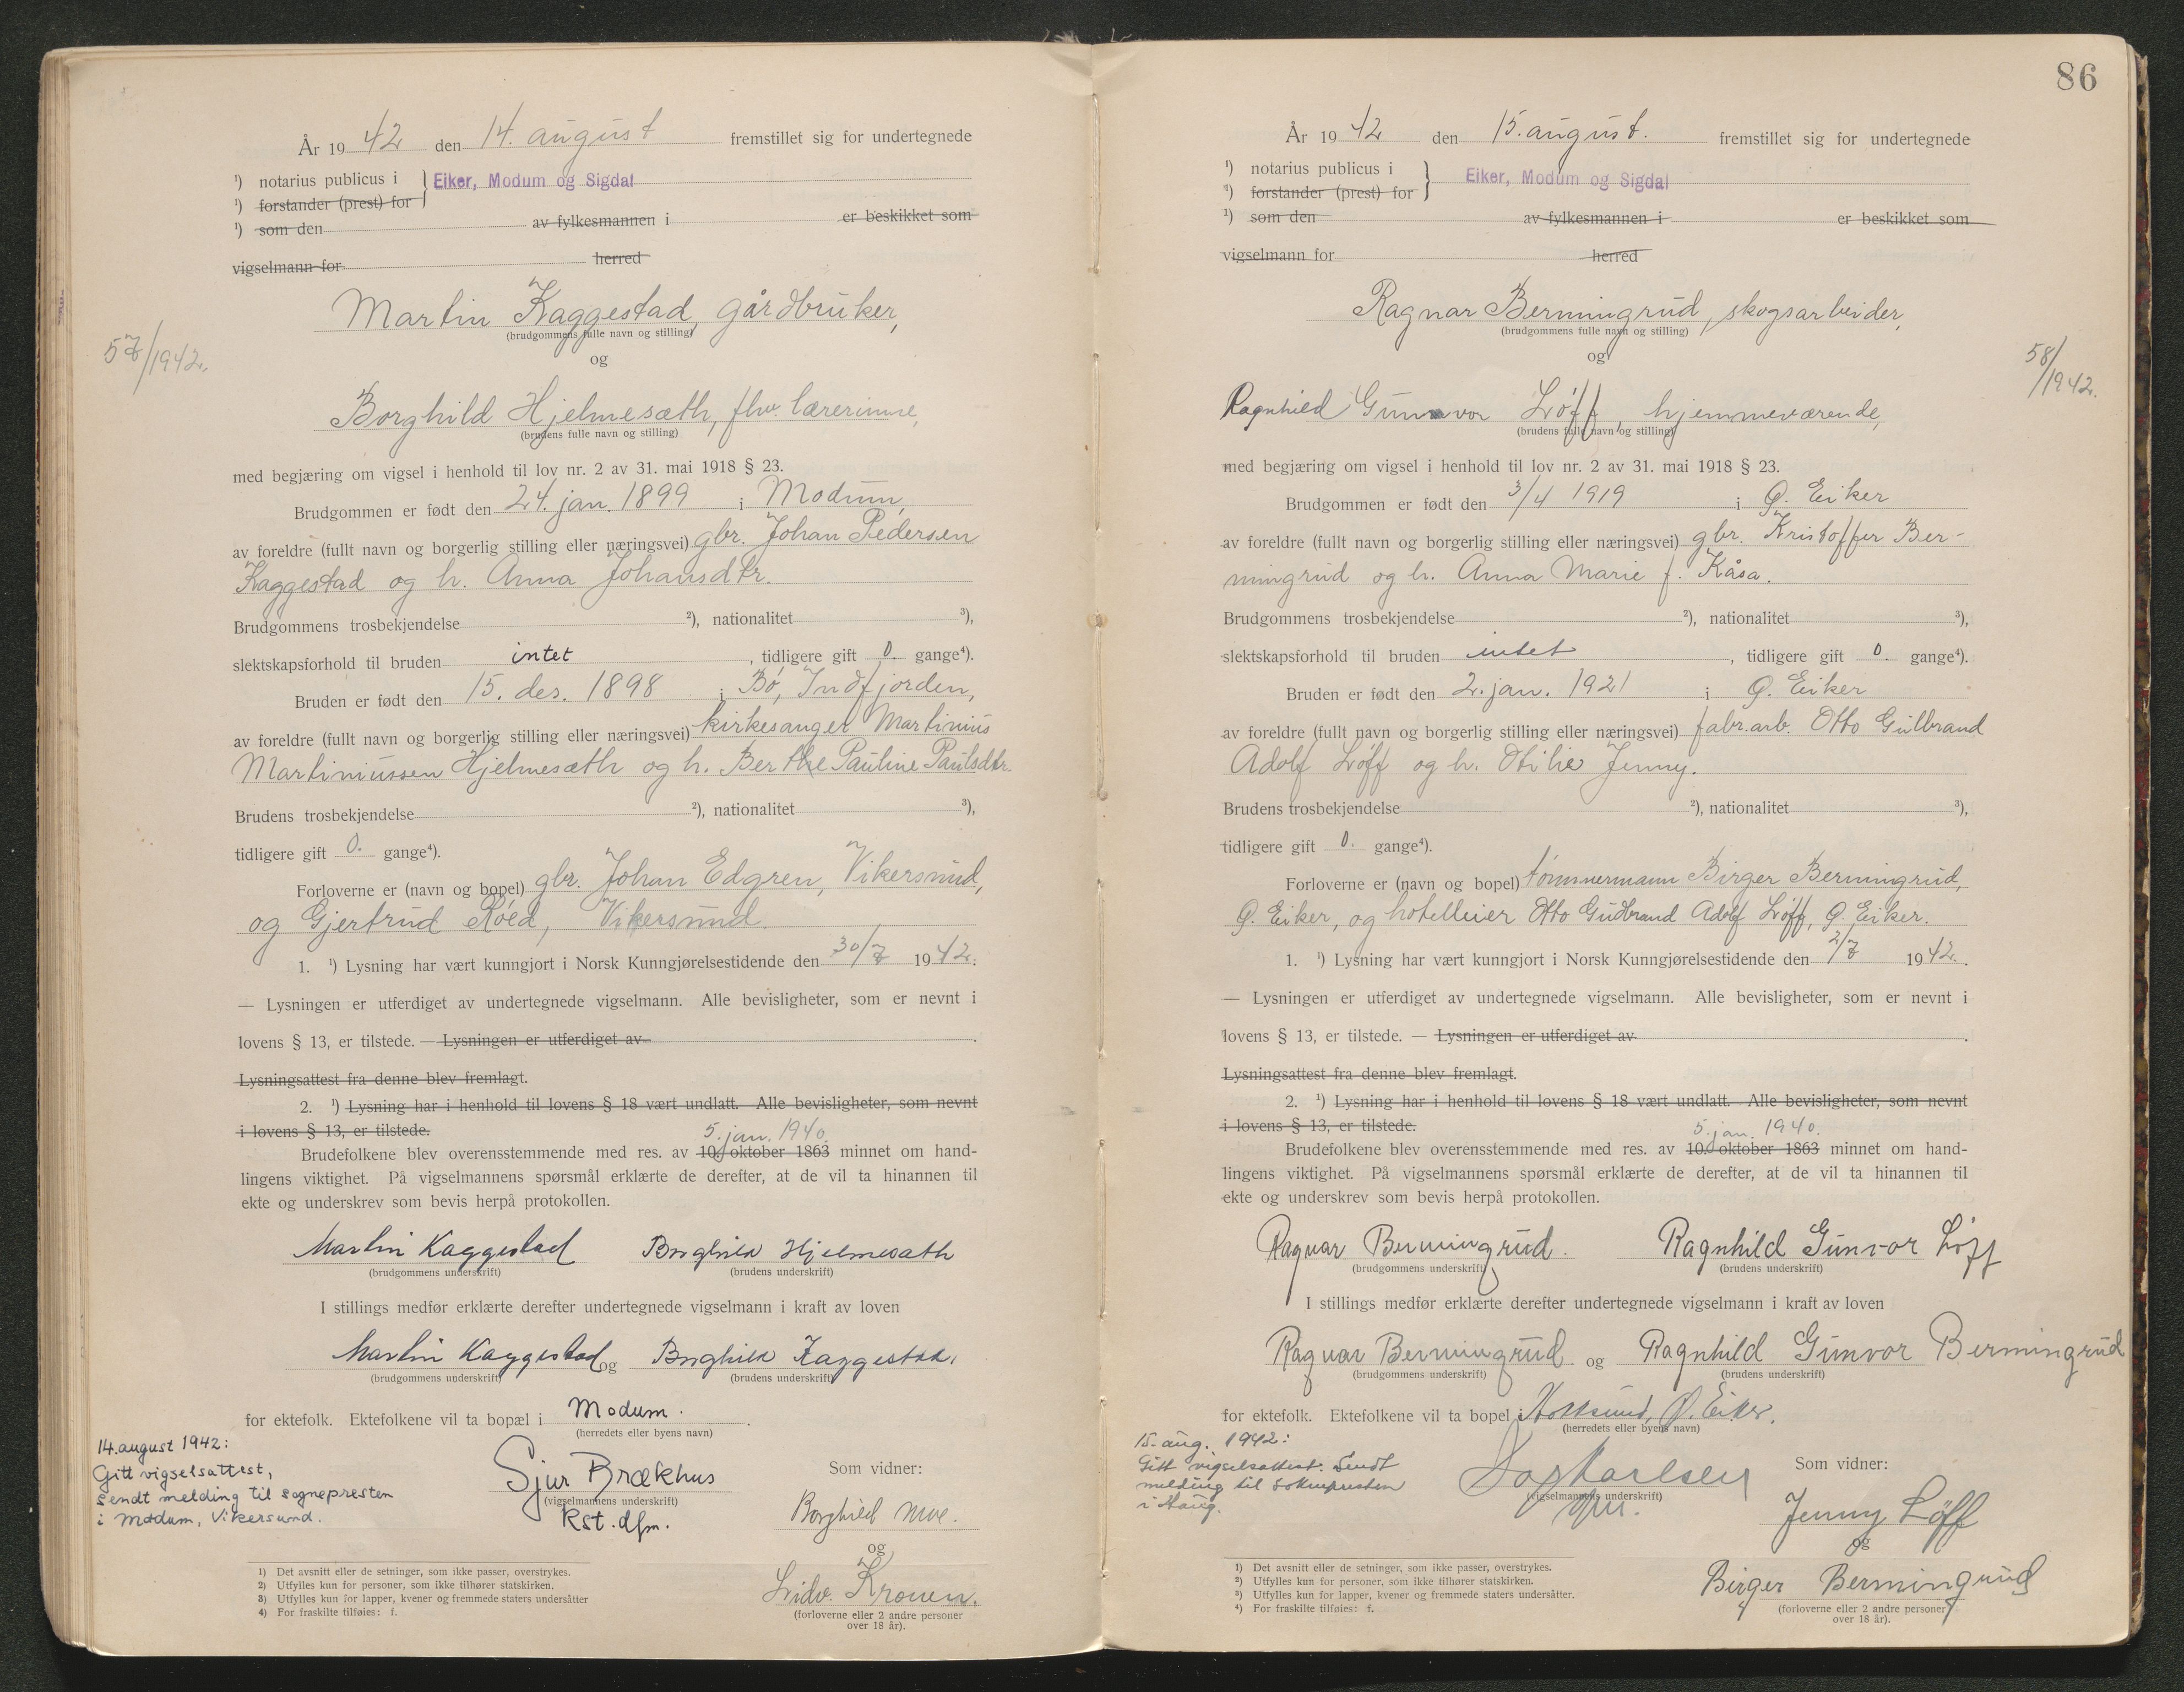 År 1942 den 14. august fremstillet sig for undertegnede
¹) notarius publicus i
Eiker, Modum og Sigdal
¹) forstander (prest) for
¹) som den av fylkesmannen i er beskikket som
vigselmann for herred
Martin Kaggestad, gårdbruker,
(brudgommens fulle navn og stilling)
57/1942.
og
Borghild Hjelmesæth, fhv. lærerinne,
(brudens fulle navn og stilling)
med begjæring om vigsel i henhold til lov nr. 2 av 31. mai 1918 § 23.
Brudgommen er født den 24. jan. 1899 i Modum,
av foreldre (fullt navn og borgerlig stilling eller næringsvei) gbr. Johan Pedersen
Kaggestad og h. Anna Johansdtr.
Brudgommens trosbekjendelse ²), nationalitet ³),
slektskapsforhold til bruden intet, tidligere gift 0. gange⁴).
Bruden er født den 15. des. 1898 i Bø, Indfjorden,
av foreldre (fullt navn og borgerlig stilling eller næringsvei) kirkesanger Martinius
Martiniussen Hjelmesæth og h. Berthe Pauline Paulsdtr.
Brudens trosbekjendelse ²), nationalitet ³),
tidligere gift 0. gange⁴).
Forloverne er (navn og bopel) gbr. Johan Edgren, Vikersund,
og Gjertrud Røed, Vikersund.
1. ¹) Lysning har vært kunngjort i Norsk Kunngjørelsestidende den 30/7 1942.
— Lysningen er utferdiget av undertegnede vigselmann. Alle bevisligheter, som er nevnt i
lovens § 13, er tilstede. — Lysningen er utferdiget av
Lysningsattest fra denne blev fremlagt.
2. ¹) Lysning har i henhold til lovens § 18 vært undlatt. Alle bevisligheter, som nevnt
i lovens § 13, er tilstede.
5. jan. 1940.
Brudefolkene blev overensstemmende med res. av 10. oktober 1863 minnet om hand-
lingens viktighet. På vigselmannens spørsmål erklærte de derefter, at de vil ta hinannen til
ekte og underskrev som bevis herpå protokollen.
Martin Kaggestad Borghild Hjelmesæth
(brudgommens underskrift) (brudens underskrift)
I stillings medfør erklærte derefter undertegnede vigselmann i kraft av loven
Martin Kaggestad og Borghild Kaggestad.
(brudgommens underskrift) (brudens underskrift)
for ektefolk. Ektefolkene vil ta bopæl i Modum.
(herredets eller byens navn)
14. august 1942:
Gitt vigselsattest,
sendt melding til sognepresten
i Modum, Vikersund.
Sjur Brækhus
(vigselmannens underskrift)
Kst. dfm.
Som vidner:
Borghild Moe.
og
Lidv. Kronen.
(forloverne eller 2 andre personer
over 18 år).
1) Det avsnitt eller de setninger, som ikke passer, overstrykes.
2) Utfylles kun for personer, som ikke tilhører statskirken.
3) Utfylles kun for lapper, kvener og fremmede staters undersåtter
4) For fraskilte tilføies: f.
86
År 1942 den 15. august. fremstillet sig for undertegnede
¹) notarius publicus i
Eiker, Modum og Sigdal
¹) forstander (prest) for
¹) som den av fylkesmannen i er beskikket som
vigselmann for herred
Ragnar Bermingrud, skogsarbeider,
(brudgommens fulle navn og stilling)
og
58/1942.
Ragnhild Gunvor Løff, hjemmeværende,
(brudens fulle navn og stilling)
med begjæring om vigsel i henhold til lov nr. 2 av 31. mai 1918 § 23.
Brudgommen er født den 3/4 1919 i Ø. Eiker
av foreldre (fullt navn og borgerlig stilling eller næringsvei) gbr. Kristoffer Ber-
mingrud og h. Anna Marie f. Kåsa.
Brudgommens trosbekjendelse ²), nationalitet ³),
slektskapsforhold til bruden intet, tidligere gift 0. gange⁴).
Bruden er født den 2. jan. 1921 i Ø. Eiker
av foreldre (fullt navn og borgerlig stilling eller næringsvei) fabr.arb. Otto Gulbrand
Adolf Løff og h. Otilie Jenny.
Brudens trosbekjendelse ²), nationalitet ³),
tidligere gift 0. gange⁴).
Forloverne er (navn og bopel) tømmermann Birger Bermingrud,
Ø. Eiker, og hotelleier Otto Gudbrand Adolf Løff, Ø. Eiker.
1. ¹) Lysning har vært kunngjort i Norsk Kunngjørelsestidende den 2/7 1942.
— Lysningen er utferdiget av undertegnede vigselmann. Alle bevisligheter, som er nevnt i
lovens § 13, er tilstede. — Lysningen er utferdiget av
Lysningsattest fra denne blev fremlagt.
2. ¹) Lysning har i henhold til lovens § 18 vært undlatt. Alle bevisligheter, som nevnt
i lovens § 13, er tilstede.
5. jan. 1940.
Brudefolkene blev overensstemmende med res. av 10. oktober 1863 minnet om hand-
lingens viktighet. På vigselmannens spørsmål erklærte de derefter, at de vil ta hinannen til
ekte og underskrev som bevis herpå protokollen.
Ragnar Bermingrud. Ragnhild Gunvor Løff
(brudgommens underskrift) (brudens underskrift)
I stillings medfør erklærte derefter undertegnede vigselmann i kraft av loven
Ragnar Bermingrud og Ragnhild Gunvor Bermingrud
(brudgommens underskrift) (brudens underskrift)
for ektefolk. Ektefolkene vil ta bopel i Hokksund, Ø. Eiker.
(herredets eller byens navn)
15. aug. 1942:
Gitt vigselsattest. Sendt
melding til soknepresten
i Haug.
Dag Karlsen
(vigselmannens underskrift)
Som vidner:
Jenny Løff
og
Birger Bermingrud
(forloverne eller 2 andre personer
over 18 år).
1) Det avsnitt eller de setninger, som ikke passer, overstrykes.
2) Utfylles kun for personer, som ikke tilhører statskirken.
3) Utfylles kun for lapper, kvener og fremmede staters undersåtter.
4) For fraskilte tilføies: f.